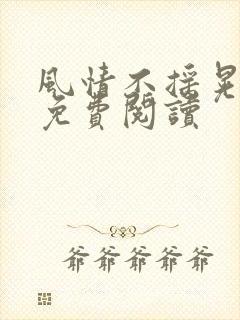 風情不搖晃
免費閱讀
爺爺爺爺爺